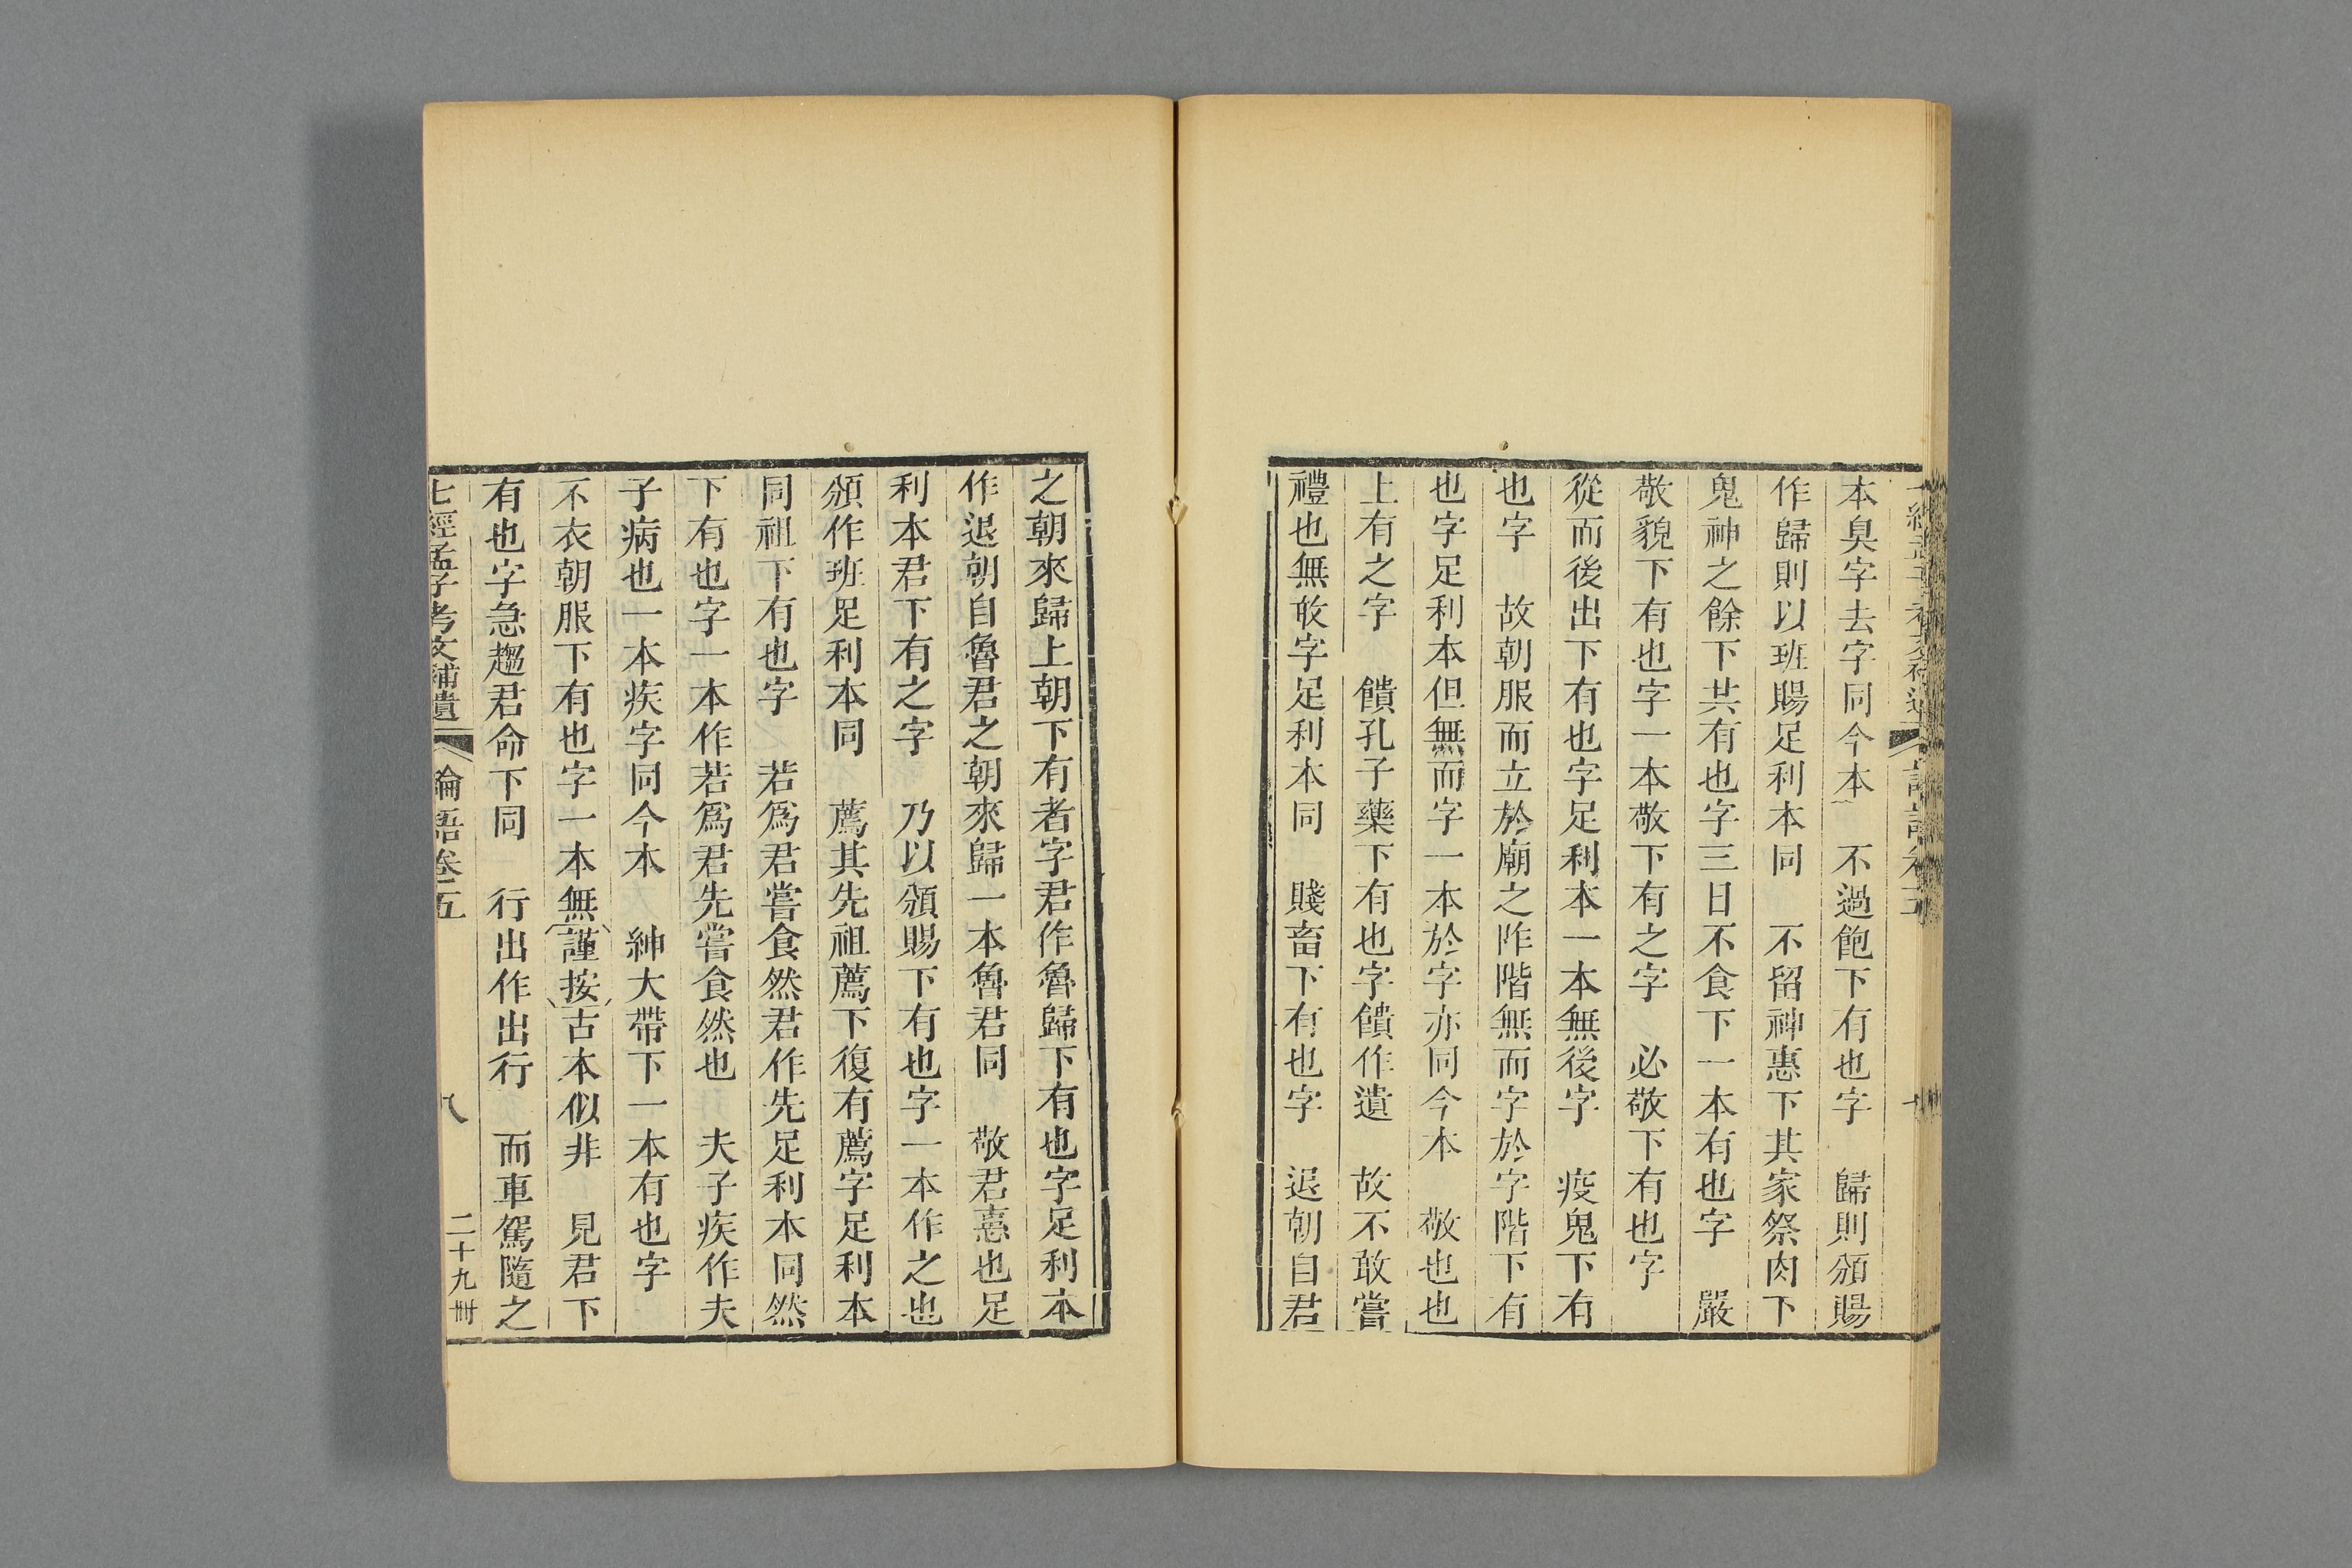 本臭字去字同今本　不過飽下有也字　歸則頒賜
作歸則以班賜足利本同　不留神惠下其家祭肉下
鬼神之餘下共有也字三日不食下一本有也字　嚴
敬貌下有也字一本敬下有之字　必敬下有也字
從而後出下有也字足利本一本無後字　疫鬼下有
也字　故朝服而立於廟之阼階無而字於字階下有
也字足利本但無而字一本於字亦同今本　敬也也
上有之字　饋孔子藥下有也字饋作遺　故不敢嘗
禮也無敢字足利本同　賤畜下有也字　退朝自君
之朝來歸上朝下有者字君作魯歸下有也字足利本
作退朝自魯君之朝來歸一本魯君同　敬君憙也足
利本君下有之字　乃以頒賜下有也字一本作之也
頒作班足利本同　薦其先祖薦下復有薦字足利本
同祖下有也字　若爲君嘗食然君作先足利本同然
下有也字一本作若爲君先嘗食然也　夫子疾作夫
子病也一本疾字同今本　紳大帶下一本有也字
不衣朝服下有也字一本無謹按古本似非　見君下
有也字急趨君命下同　行出作出行　而車駕隨之
七經孟子考文補遺　論語卷五　八　二十九冊